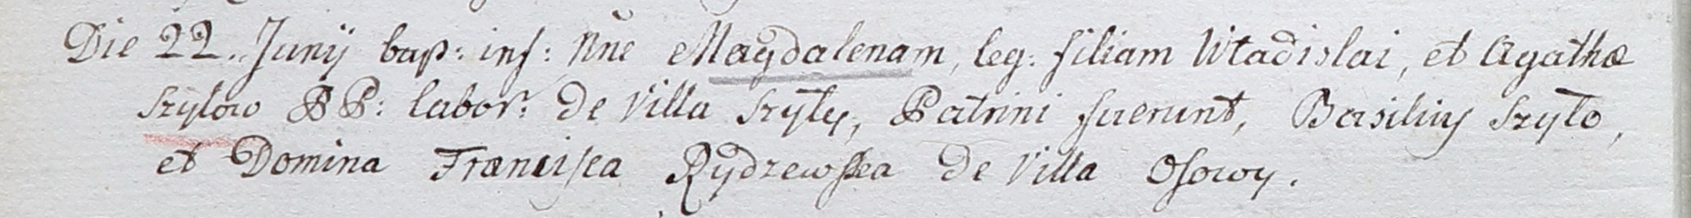 Die 22. Junij bapt: inf: nne Magdalenam, leg: filiam Wladislai, et Agathæ
Szylow PP: labor: de Villa Szyły, Patrini fuerunt, Basilius Szyło,
et Domina Francisca Rydzewska de Villa Osowy.